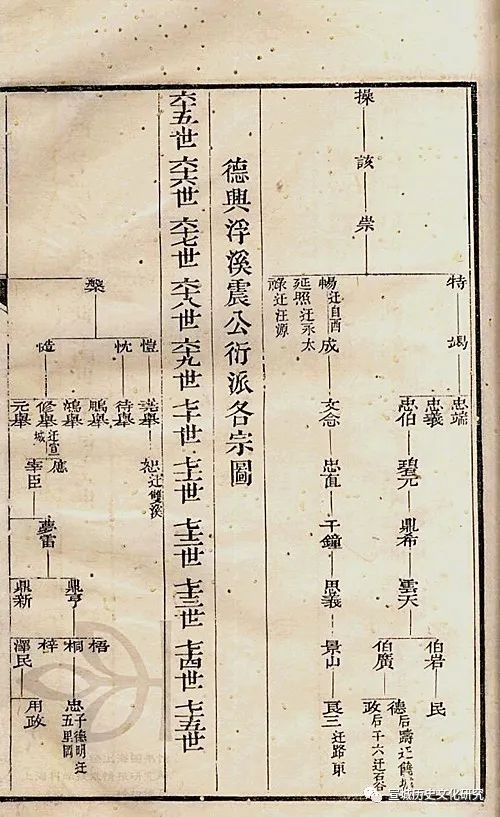 操
該
崇
特
暢迁自酉
延照迁永太
祿迁汪源
竭
成
忠端
忠義
忠伯
文念
碧元
忠直
鼎希
千鐘
雲天
思義
伯岩
伯廣
景山
民
德后躋迁饒城
政后千六迁石谷
良三迁路町
德興浮溪震公衍派各宗圖
六十五世
六十六世
六十七世
六十八世
六十九世
七十世
七十一世
七十二世
七十三世
七十四世
七十五世
槩
愷
忱
愭
諾舉
待舉
鵬舉
鴻舉
修舉迁宣城
元舉
恕迁雙溪
應
宰臣
夢雷
鼎亨
鼎新
梧
桐
梓
澤民
忠子德明迁五里岡
用政
宣城历史文化研究